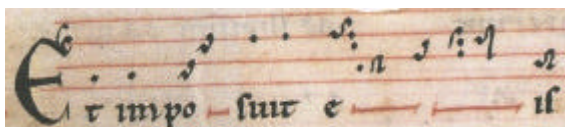 Et impo suit e is